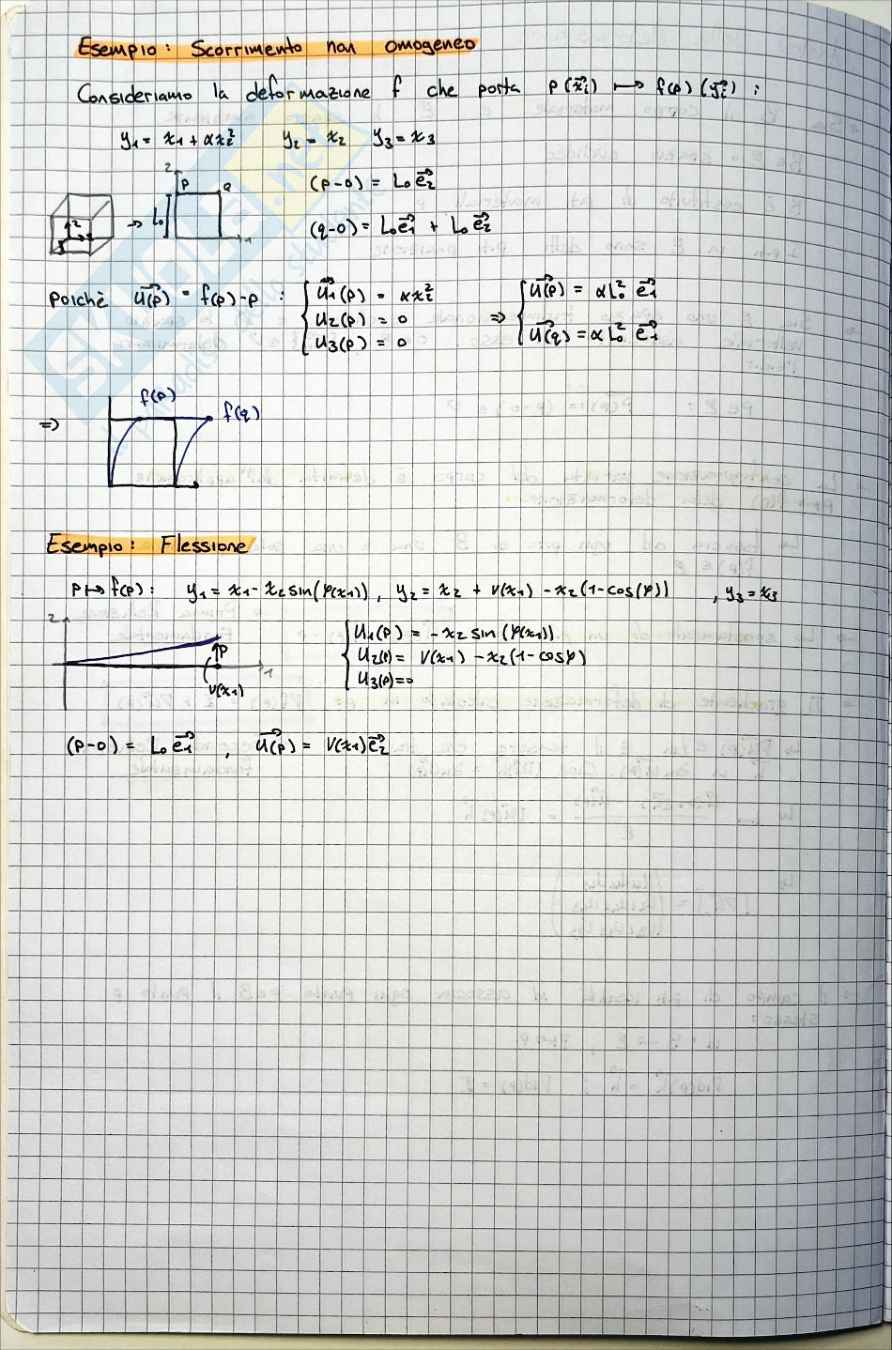 Esempio: Scorrimento non omogeneo
Consideriamo la deformazione f che porta p(x⃗i) ↦ f(p)(y⃗i) :
y1 = x1 + αx2² y2 = x2 y3 = x3
2 P Q
L0
2 1 3
1
(p-o) = L0 e⃗2
(q-o) = L0 e⃗1 + L0 e⃗2
Poichè u⃗(p) = f(p)-p : { u1(p) = αx2² ⇒ { u⃗(p) = αL0² e⃗1
u2(p) = 0
u3(p) = 0 u⃗(q) = αL0² e⃗1
⇒ f(p) f(q)
Esempio: Flessione
p ↦ f(p): y1 = x1 - x2 sin(φ(x1)), y2 = x2 + v(x1) - x2(1-cos(φ)) , y3 = x3
2
P
1
v(x1)
{ u1(p) = -x2 sin(φ(x1))
u2(p) = v(x1) - x2(1-cosφ)
u3(p)=0
(p-o) = L0 e⃗1 , u⃗(p) = v(x1) e⃗2